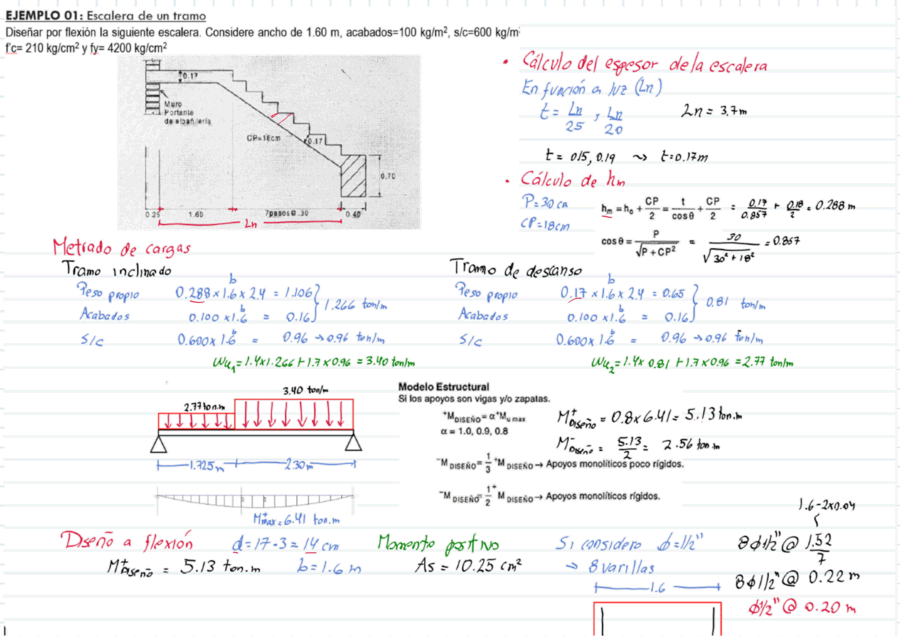 EJEMPLO 01: Escalera de un tramo
Diseñar por flexión la siguiente escalera. Considere ancho de 1.60 m, acabados=100 kg/m², s/c=600 kg/m
f'c= 210 kg/cm² y fy= 4200 kg/cm²
0.17
Muro
Portante
de albañilería
CP=18cm
0.17
0.70
0.25 1.60 7 pasos @ .30 0.40
Ln
• Cálculo del espesor de la escalera
En función a luz (Ln)
t = Ln/25 , Ln/20 Ln = 3.7m
t = 0.15, 0.19 ~> t=0.17m
• Cálculo de hm
P=30 cm
CP=18cm
hm = h₀ + CP/2 = t/cos θ + CP/2 = 0.17/0.857 + 0.18/2 = 0.288 m
cos θ = P/√(P+CP²) = 30/√(30²+18²) = 0.857
Metrado de cargas
Tramo inclinado
b
Peso propio 0.288 x 1.6 x 2.4 = 1.106
Acabados 0.100 x 1.6 = 0.16 } 1.266 ton/m
b
S/c 0.600 x 1.6 = 0.96 → 0.96 ton/m
b
Wu₁ = 1.4x1.266 + 1.7x0.96 = 3.40 ton/m
Tramo de descanso
b
Peso propio 0.17 x 1.6 x 2.4 = 0.65
Acabados 0.100 x 1.6 = 0.16 } 0.81 ton/m
b
S/c 0.600 x 1.6 = 0.96 → 0.96 ton/m
b
Wu₂ = 1.4x 0.81 + 1.7x0.96 = 2.77 ton/m
3.40 ton/m
2.77 ton/m
1.725m 2.30m
Mmax = 6.41 ton.m
Modelo Estructural
Si los apoyos son vigas y/o zapatas.
⁺M DISEÑO = α⁺M u max
α = 1.0, 0.9, 0.8
⁻M DISEÑO = 1/3 ⁺M DISEÑO → Apoyos monolíticos poco rígidos.
⁻M DISEÑO = 1/2 ⁺M DISEÑO → Apoyos monolíticos rígidos.
M⁺Diseño = 0.8 x 6.41 = 5.13 ton.m
M⁻Diseño = 5.13/2 = 2.56 ton.m
Diseño a flexión d = 17-3 = 14 cm
M⁺Diseño = 5.13 ton.m b = 1.6 m
Momento positivo
As = 10.25 cm²
Si considero ϕ=1/2"
→ 8 varillas
1.6
1.6-2x0.04
8ϕ1/2" @ 1.52/7
8ϕ1/2" @ 0.22 m
ϕ1/2" @ 0.20 m